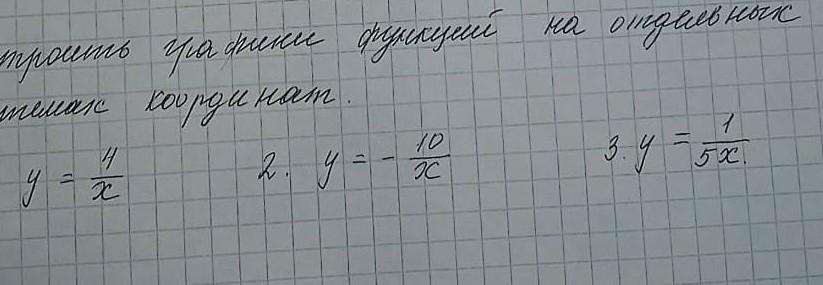 троить графики функций на отдельных
темах координат.
y = 4/x 2. y = - 10/x 3. y = 1/5x.